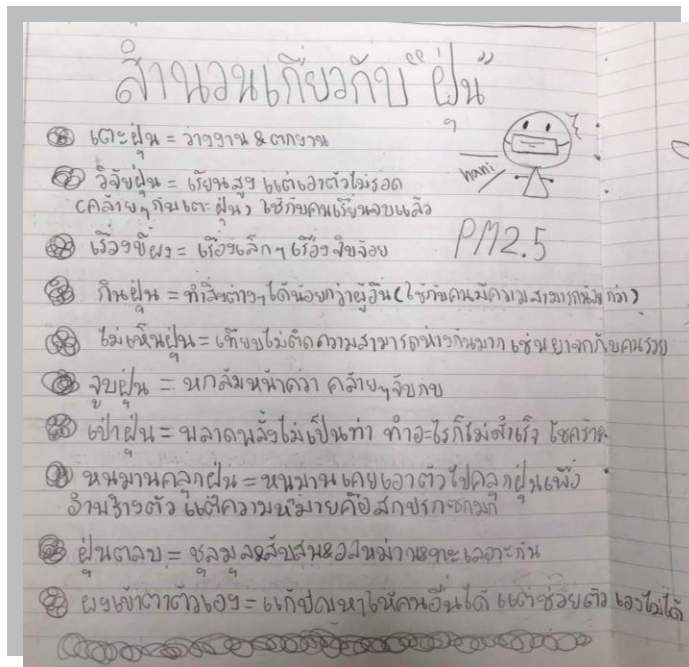 สำนวนเกี่ยวกับ "ฝุ่น"
เตะฝุ่น = ว่างงาน & ตกงาน
วิจัยฝุ่น = เรียนสูง แต่เอาตัวไม่รอด
(คล้ายๆกับเตะฝุ่น) ใช้กับคนเรียนจบแล้ว
hani
PM2.5
เรื่องขี้ผง = เรื่องเล็กๆ เรื่องจิบจ้อย
กินฝุ่น = ทำสิ่งต่างๆได้น้อยกว่าผู้อื่น (ใช้กับคนมีความสามารถน้อยกว่า)
ไม่เห็นฝุ่น = เทียบไม่ติดความสามารถห่างกันมาก เช่นยาจกกับคนรวย
จูบฝุ่น = หกล้มหน้าคว่ำ คล้ายๆจับกบ
เป่าฝุ่น = พลาดพลั้งไม่เป็นท่า ทำอะไรก็ไม่สำเร็จ โชคร้าย
หนุมานคลุกฝุ่น = หนุมานเคยเอาตัวไปคลุกฝุ่นเพื่อ
อำพรางตัว แต่ความหมายคือสกปรกซกมก
ฝุ่นตลบ = ชุลมุน&สับสน&อลหม่าน&ทะเลาะกัน
ผงเข้าตาตัวเอง = แก้ปัญหาให้คนอื่นได้ แต่ช่วยตัวเองไม่ได้